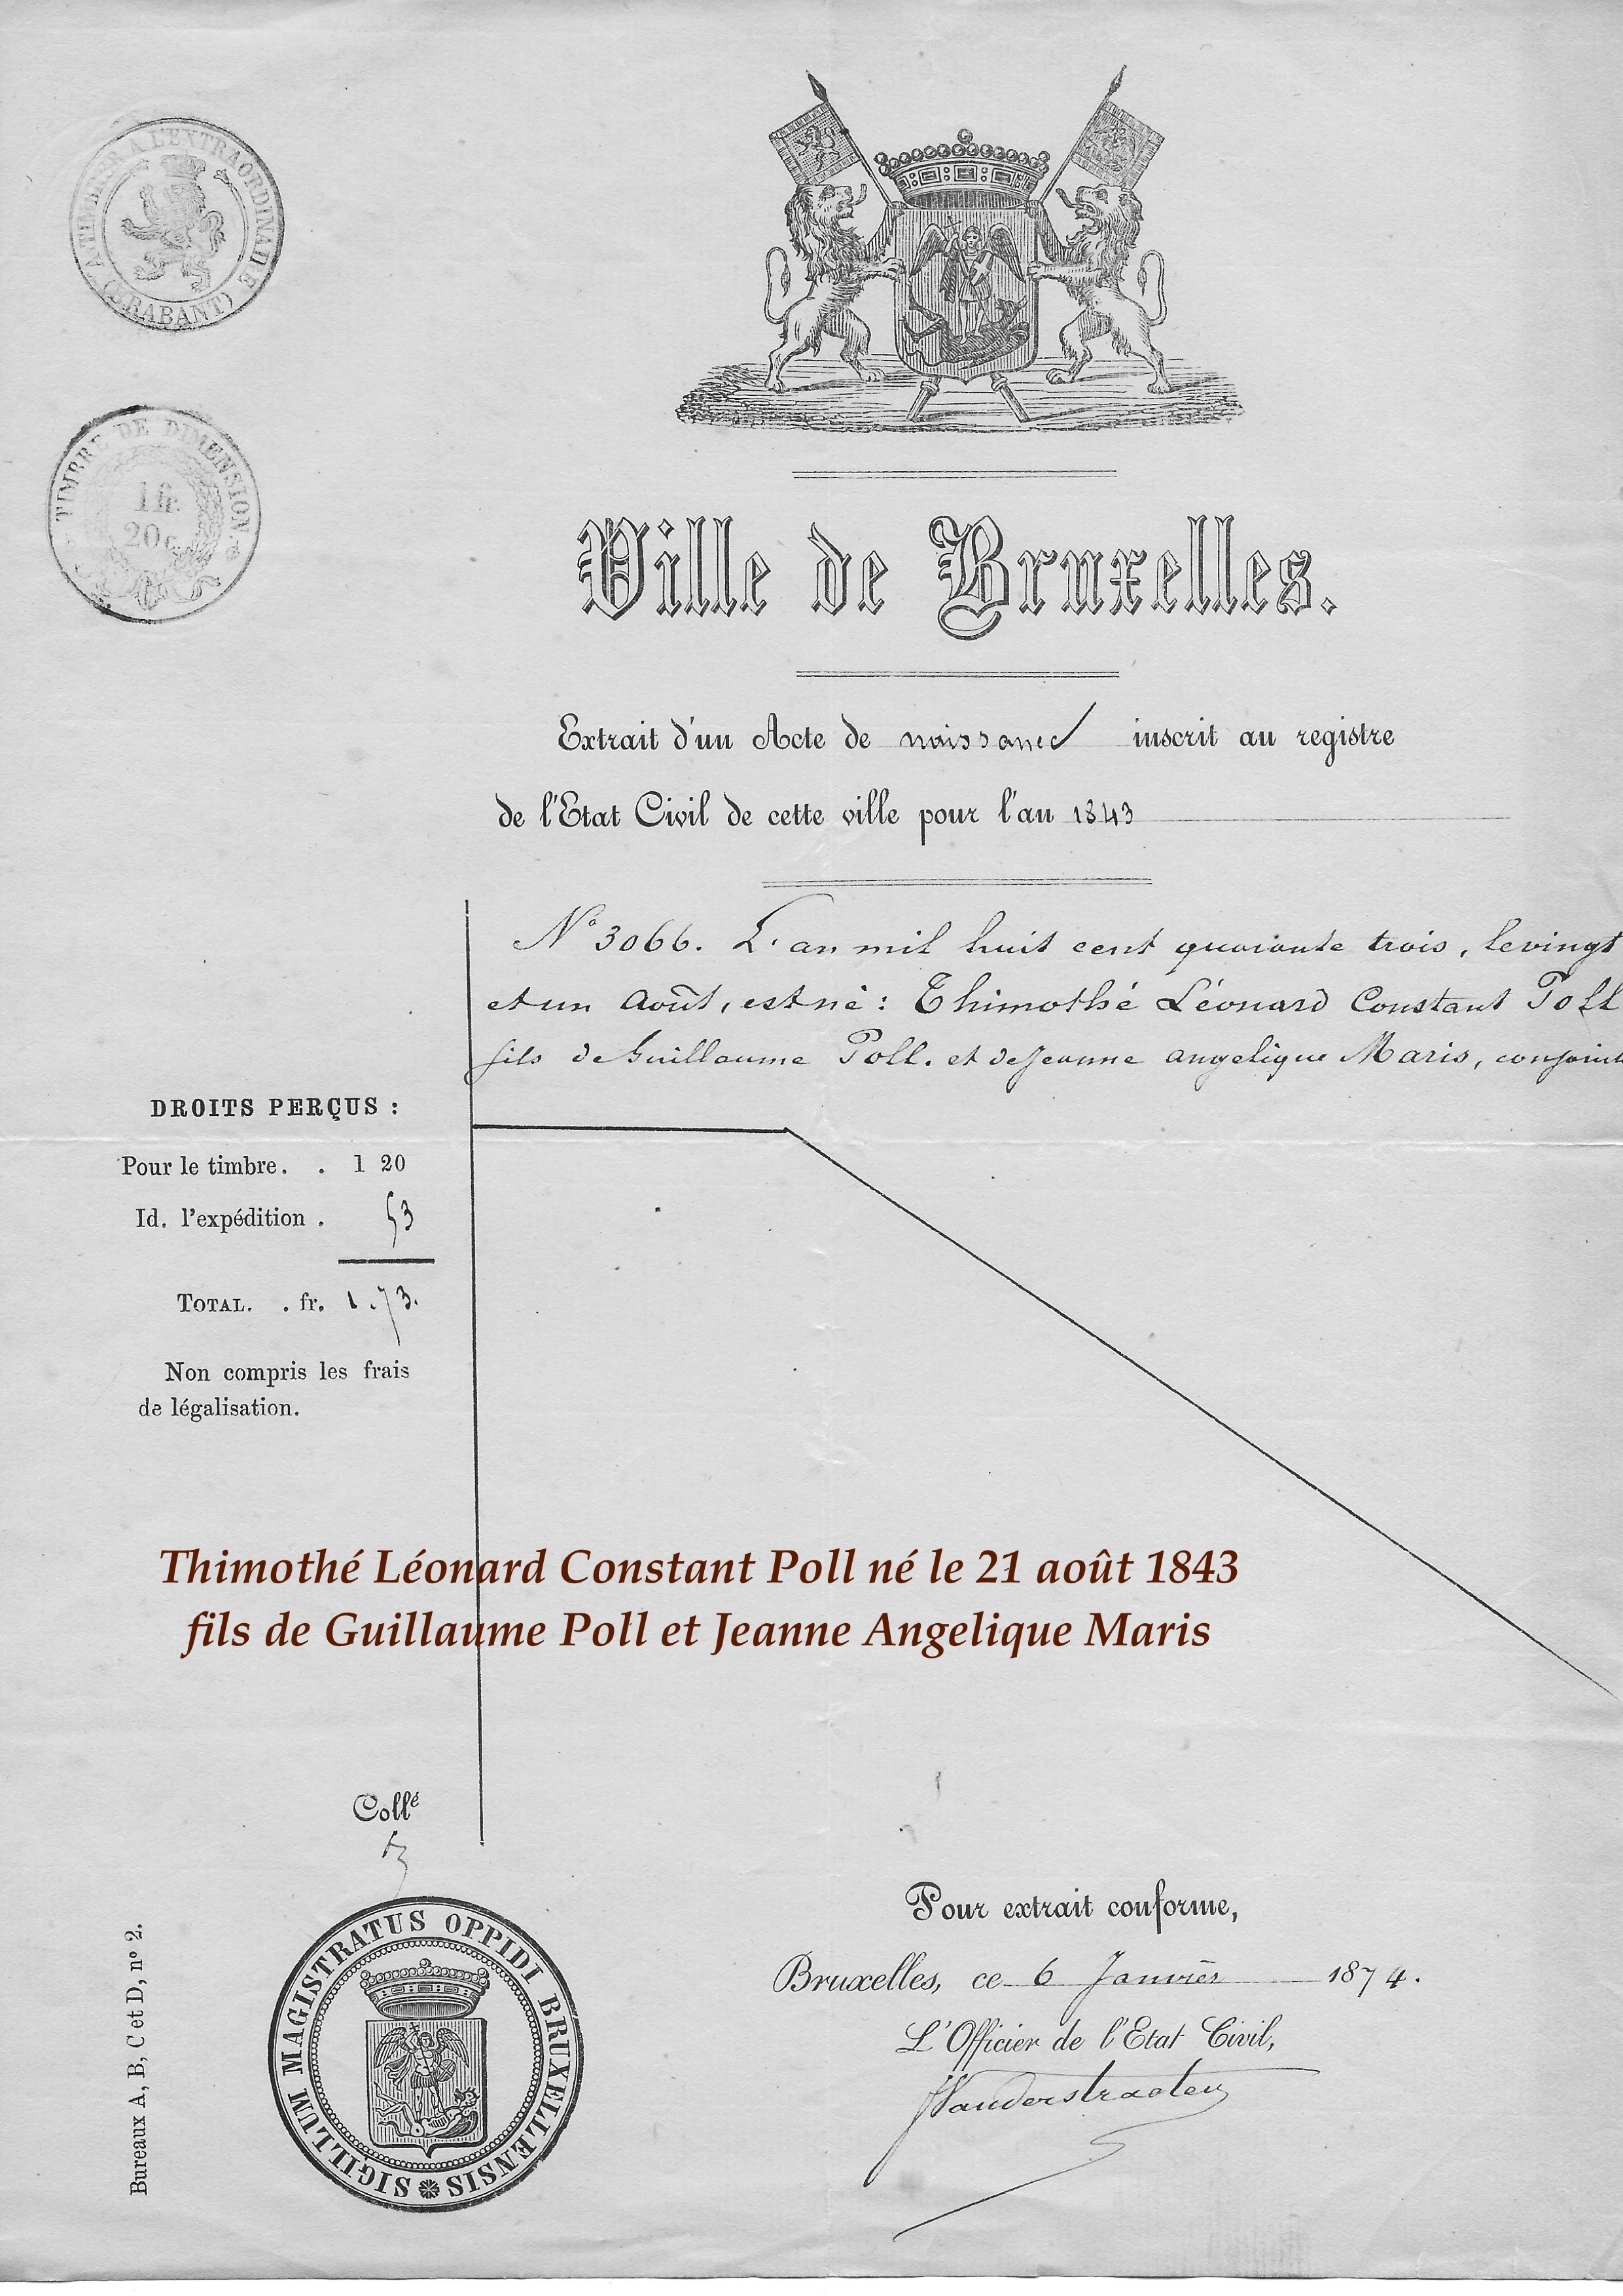 A TIMBRER A L'EXTRAORDINAIRE
(BRABANT)
TIMBRE DE DIMENSION
1 fr.
20 c.
Ville de Bruxelles.
Extrait d'un Acte de naissance inscrit au registre
de l'Etat Civil de cette ville pour l'an 1843
N° 3066. L'an mil huit cent quarante trois, le vingt
et un Août, est né : Thimothé Léonard Constant Poll
fils de Guillaume Poll. et de Jeanne angelique Maris, conjoints
DROITS PERÇUS :
Pour le timbre. . 1 20
Id. l'expédition . 53
TOTAL. . fr. 1.73.
Non compris les frais
de légalisation.
Thimothé Léonard Constant Poll né le 21 août 1843
fils de Guillaume Poll et Jeanne Angelique Maris
Collé
Pour extrait conforme,
Bruxelles, ce 6 Janvier 1874.
L'Officier de l'Etat Civil,
Vanderstraeten
SIGILLUM MAGISTRATUS OPPIDI BRUXELLENSIS
Bureaux A, B, C et D, n° 2.